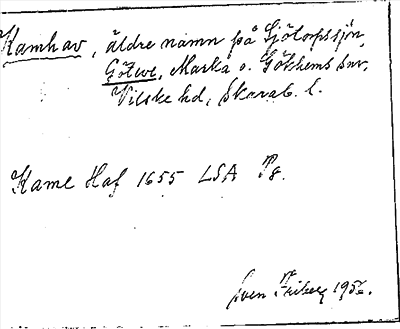 Kamhav, äldre namn på Sjötorpssjön,
Götwe, Marka o. Gökhems snr,
Vilske hd, Skarab. l.
Kame Haf 1655 LSA P8.
Sven Friberg 1956.